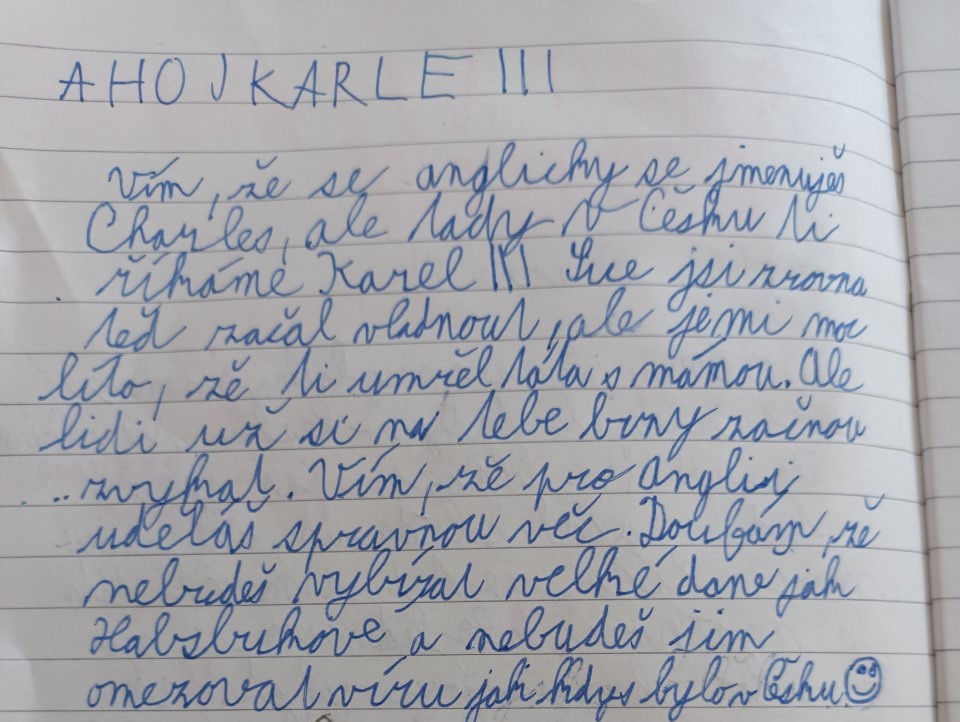 AHOJ KARLE III
Vím, že se anglicky se jmenuješ
Charles, ale tady v Česku ti
říkáme Karel III Sice jsi zrovna
teď začal vládnout, ale je mi moc
líto, že ti umřel táta s mámou. Ale
lidi už si na tebe brzy začnou
zvykat. Vím, že pro Anglii
uděláš správnou věc. Doufám, že
nebudeš vybírat velké daně jak
Habsburkové a nebudeš jim
omezovat víru jak kdys bylo v Česku